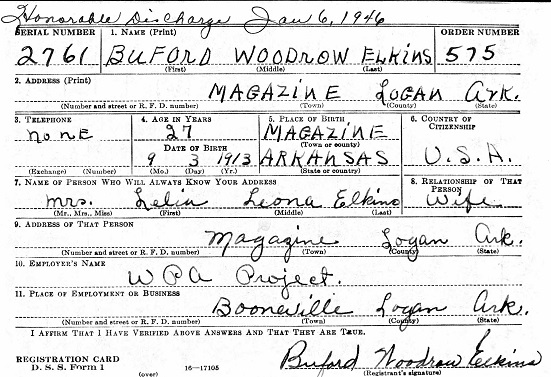 Honorable Discharge Jan 6, 1946
SERIAL NUMBER 1. NAME (Print) ORDER NUMBER
2761 BUFORD WOODROW ELKINS 575
(First) (Middle) (Last)
2. ADDRESS (Print)
MAGAZINE LOGAN ARK.
(Number and street or R. F. D. number) (Town) (County) (State)
3. TELEPHONE 4. AGE IN YEARS 5. PLACE OF BIRTH 6. COUNTRY OF CITIZENSHIP
NONE 27 MAGAZINE
(Town or county)
DATE OF BIRTH
9 3 1913 ARKANSAS U.S.A.
(Exchange) (Number) (Mo.) (Day) (Yr.) (State or country)
7. NAME OF PERSON WHO WILL ALWAYS KNOW YOUR ADDRESS 8. RELATIONSHIP OF THAT PERSON
Mrs. Lelia Leona Elkins Wife
(Mr., Mrs., Miss) (First) (Middle) (Last)
9. ADDRESS OF THAT PERSON
Magazine Logan Ark.
(Number and street or R. F. D. number) (Town) (County) (State)
10. EMPLOYER'S NAME
WPA Project.
11. PLACE OF EMPLOYMENT OR BUSINESS
Booneville Logan Ark.
(Number and street or R. F. D. number) (Town) (County) (State)
I AFFIRM THAT I HAVE VERIFIED ABOVE ANSWERS AND THAT THEY ARE TRUE.
REGISTRATION CARD
D. S. S. Form 1 16—17105 Buford Woodrow Elkins
(over) (Registrant's signature)